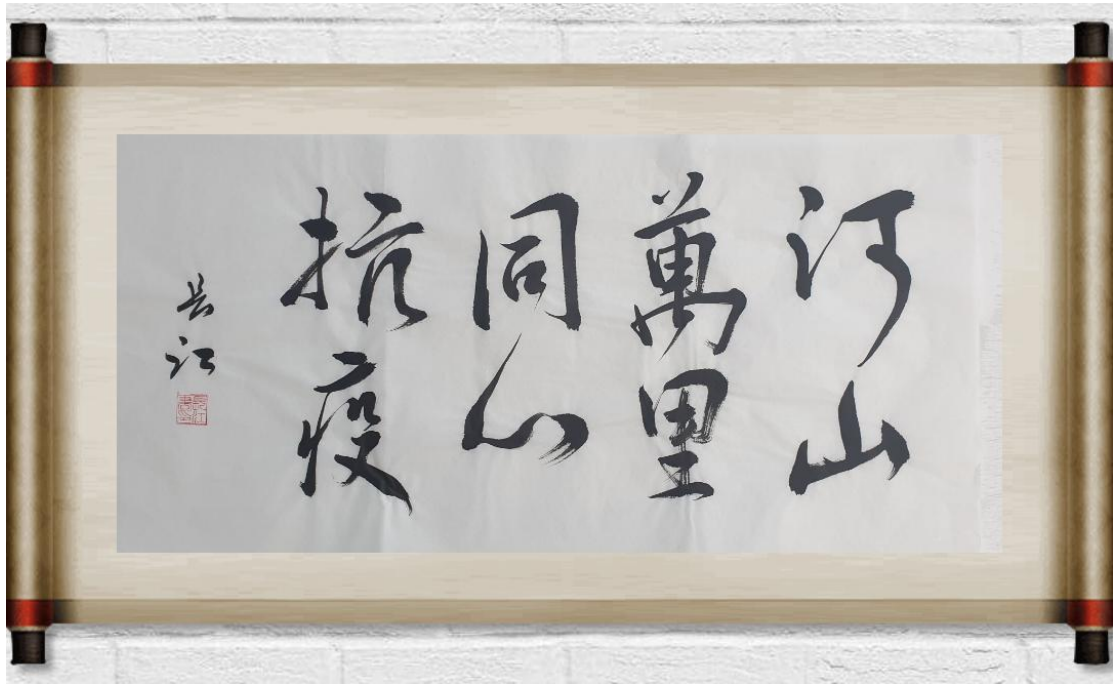 河山
萬里
同心
抗疫
長江